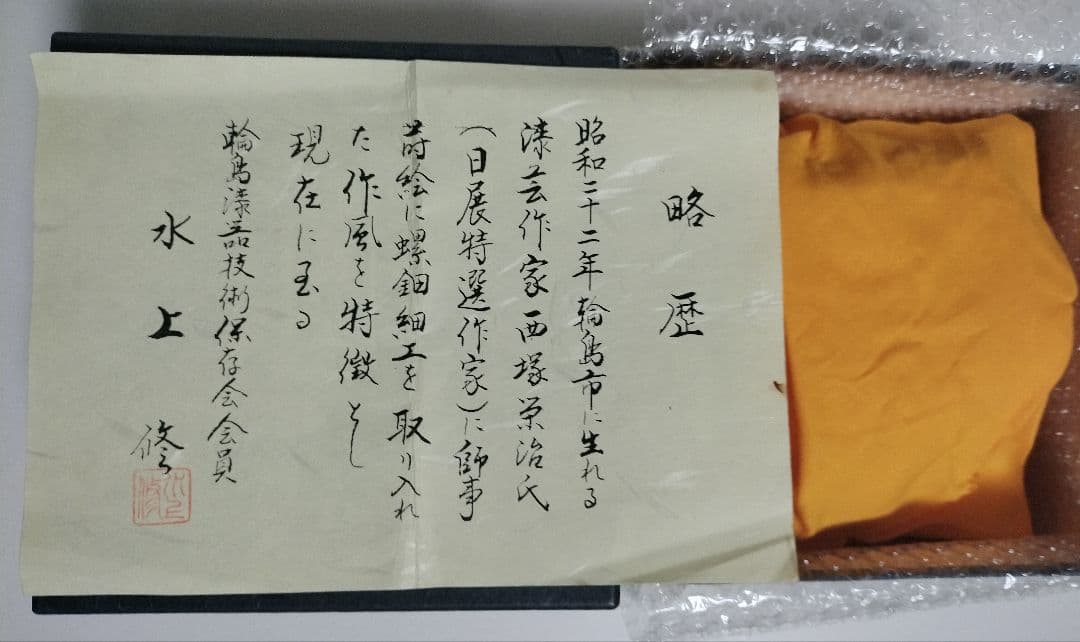 略歴
昭和二十二年輪島市に生れる
漆芸作家西塚栄治氏
(日展特選作家)に師事
蒔絵に螺鈿細工を取り入れ
た作風を特徴とし
現在に至る
輪島漆器技術保存会会員
水上修